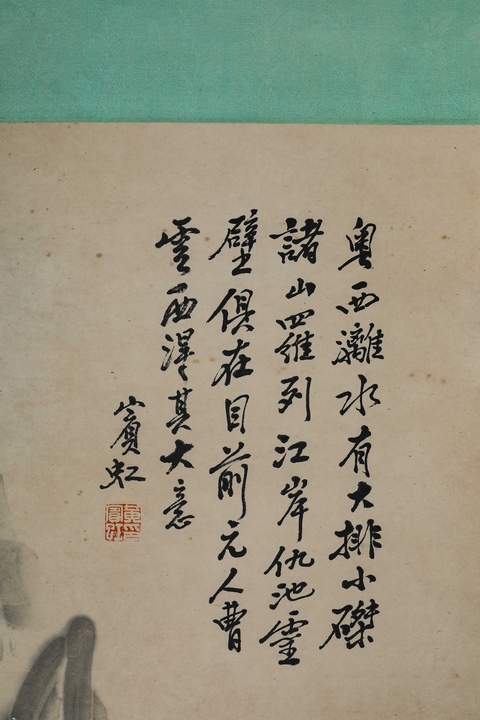 粵西灕水有大排小磔
諸山羅列江岸仇池靈
壁俱在目前元人曹
雲西淂其大意
賓虹